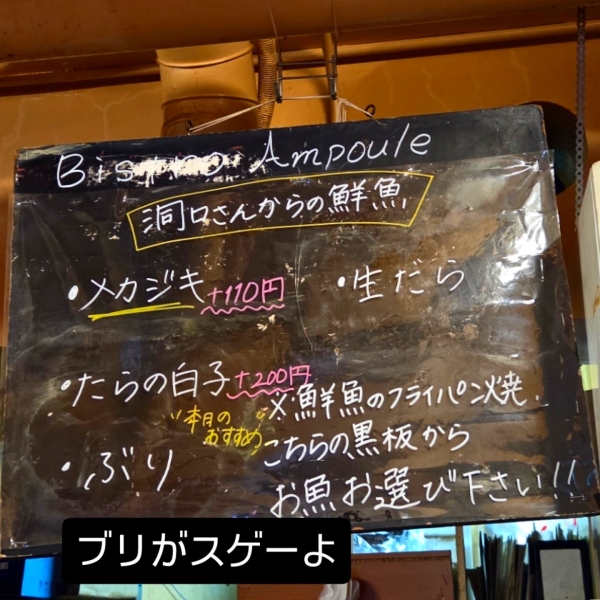 Bistro Ampoule
洞口さんからの鮮魚
・メカジキ +110円
・生だら
・たらの白子 +200円
"本日のおすすめ"
・ぶり
※鮮魚のフライパン焼
こちらの黒板から
お魚お選び下さい!!
ブリがスゲーよ